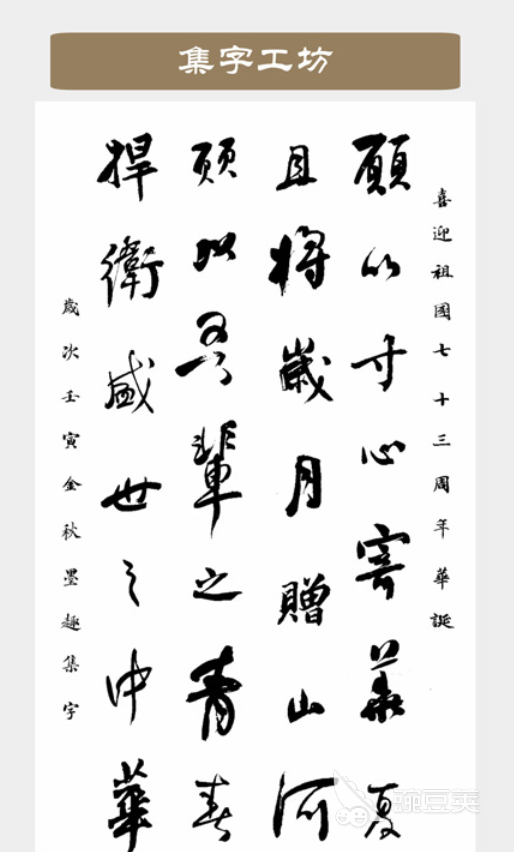 集字工坊
喜迎祖國七十三周年華誕
願以寸心寄華夏
且將歲月贈山河
願以吾輩之青春
捍衛盛世之中華
歲次壬寅金秋墨趣集字
豌豆荚